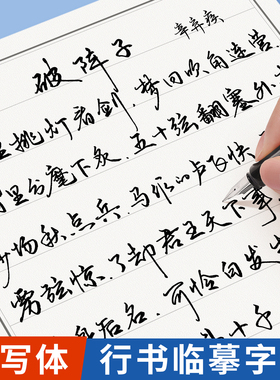 破阵子
辛弃疾
里挑灯看剑，梦回吹角连营
里分麾下炙，五十弦翻塞外
沙场秋点兵，马作的卢飞快
雳弦惊，了却君王天下事
身后名，可怜白发
写体 行书临摹字